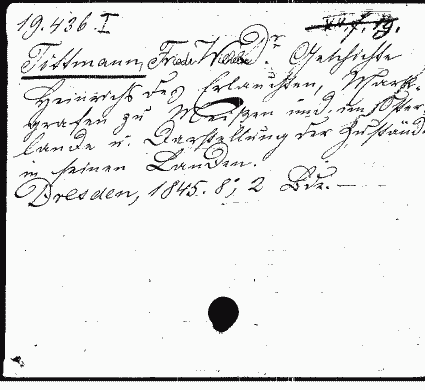 19.436.I
Tittmann, Friedr. Wilhelm Dr. Geschichte
Heinrichs des Erlauchten, Mark-
grafen zu Meissen und im Oster-
lande u. Darstellung der Zustände
in seinen Landen.
Dresden, 1845. 8°, 2 Bde. —